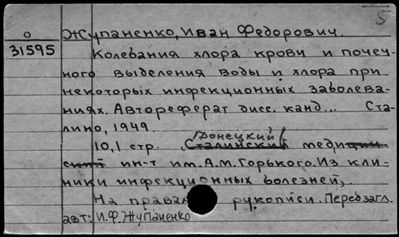 5
Жупаненко, Иван Федорович.
0
31595
Колебания хлора крови и почеч-
ного выделения воды и хлора при
некоторых инфекционных заболева-
ниях. Автореферат дисс. канд... Ста-
лино, 1949.
Донецкий
10,1 стр. Сталинский медицин-
ский ин-т им. А.М. Горького. Из кли-
ники инфекционных болезней,
На правах рукописи. Перед загл.
авт: И.Ф. Жупаненко